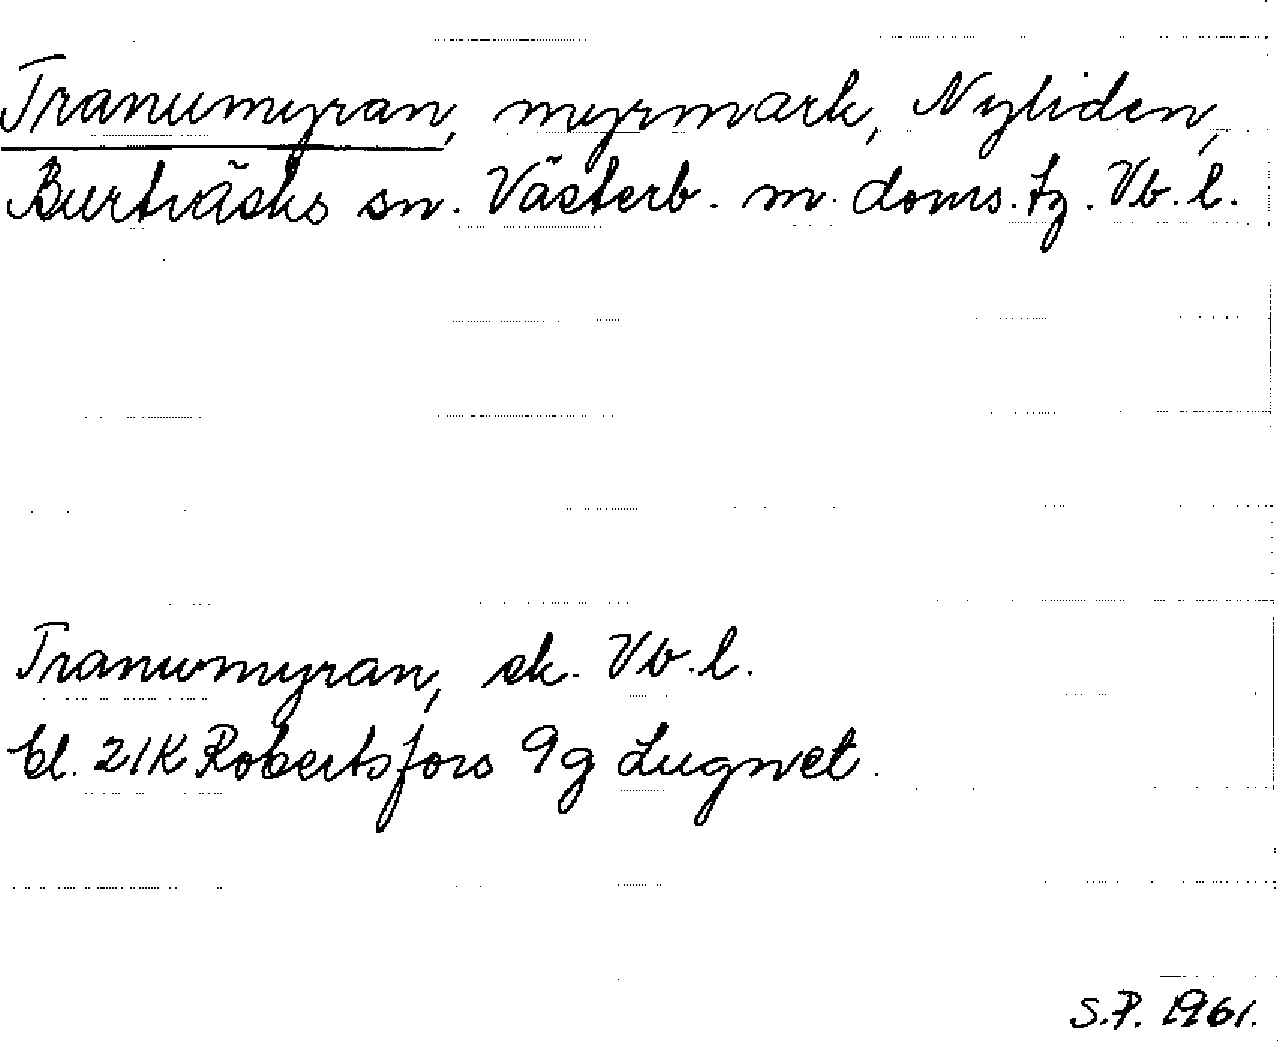 Tranumyran, myrmark, Nyliden,
Burträsks sn. Västerb. m. doms. tg. Vb. l.
Tranumyran, ek. Vb. l.
bl. 21K Robertsfors 9g Lugnet.
S.P. 1961.